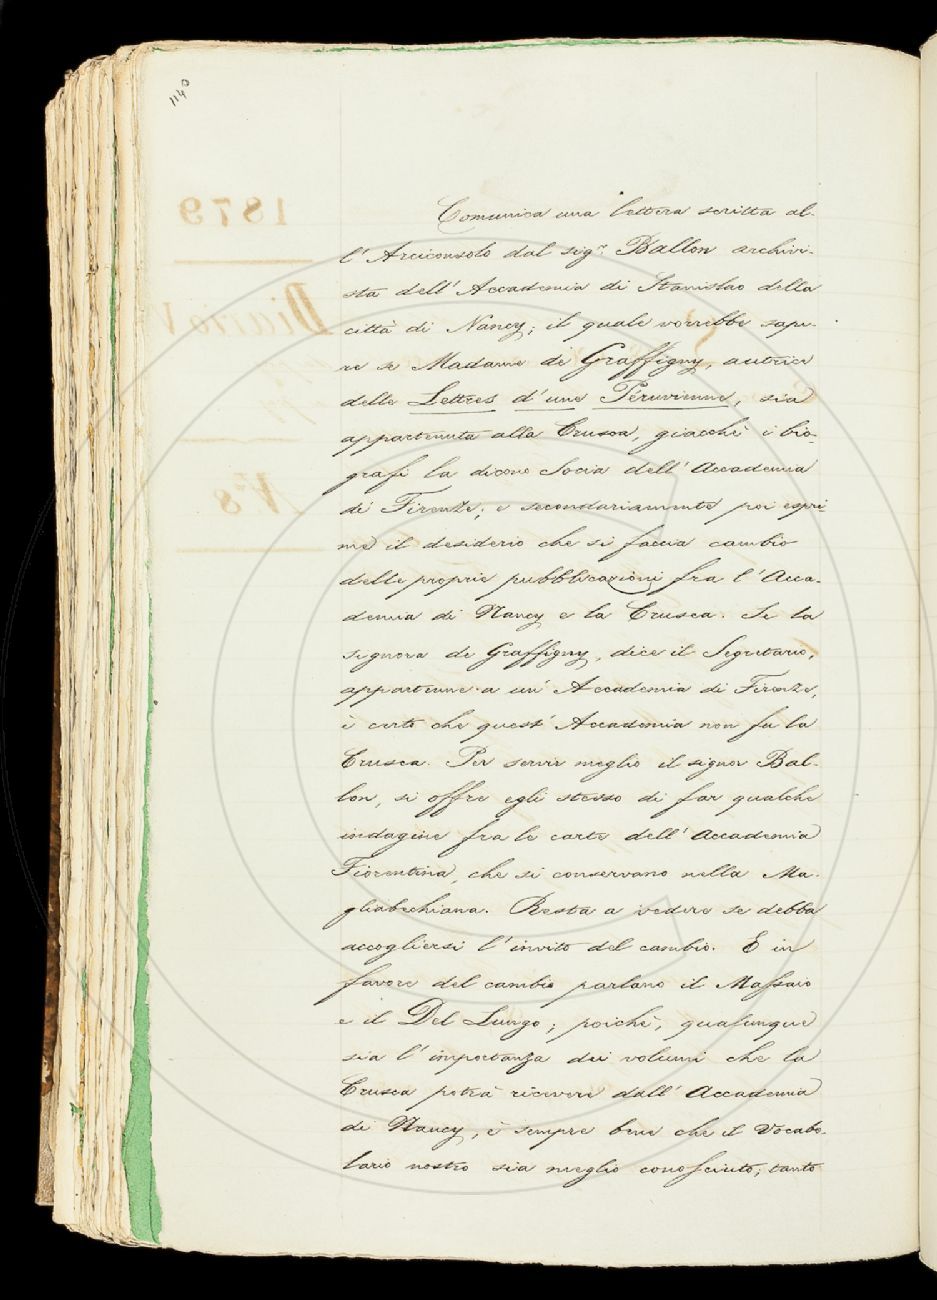 1140
Comunica una lettera scritta al-
l'Arciconsolo dal sig.r Ballon archivi-
sta dell'Accademia di Stanislao della
città di Nancy; il quale vorrebbe sape-
re se Madame de Graffigny, autrice
delle Lettres d'une Péruvienne, sia
appartenuta alla Crusca, giacchè i bio-
grafi la dicono Socia dell'Accademia
di Firenze; e secondariamente poi espri
me il desiderio che si faccia cambio
delle proprie pubblicazioni fra l'Acca-
demia di Nancy e la Crusca. Se la
signora de Graffigny, dice il Segretario,
appartenne a un'Accademia di Firenze,
è certo che quest'Accademia non fu la
Crusca. Per servir meglio il signor Bal-
lon, si offre egli stesso di far qualche
indagine fra le carte dell'Accademia
Fiorentina, che si conservano nella Ma-
gliabechiana. Resta a vedere se debba
accogliersi l'invito del cambio. E in
favore del cambio parlano il Massaio
e il Del Lungo; poichè, qualunque
sia l'importanza dei volumi che la
Crusca potrà ricevere dall'Accademia
di Nancy, è sempre bene che il Vocabo-
lario nostro sia meglio conosciuto; tanto
1879
Diario V
N.° 8